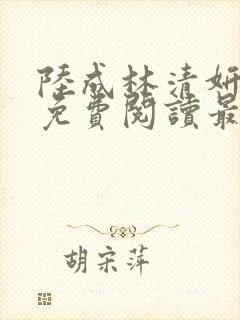 陸成林清妍
免費閱讀最
胡宗萍